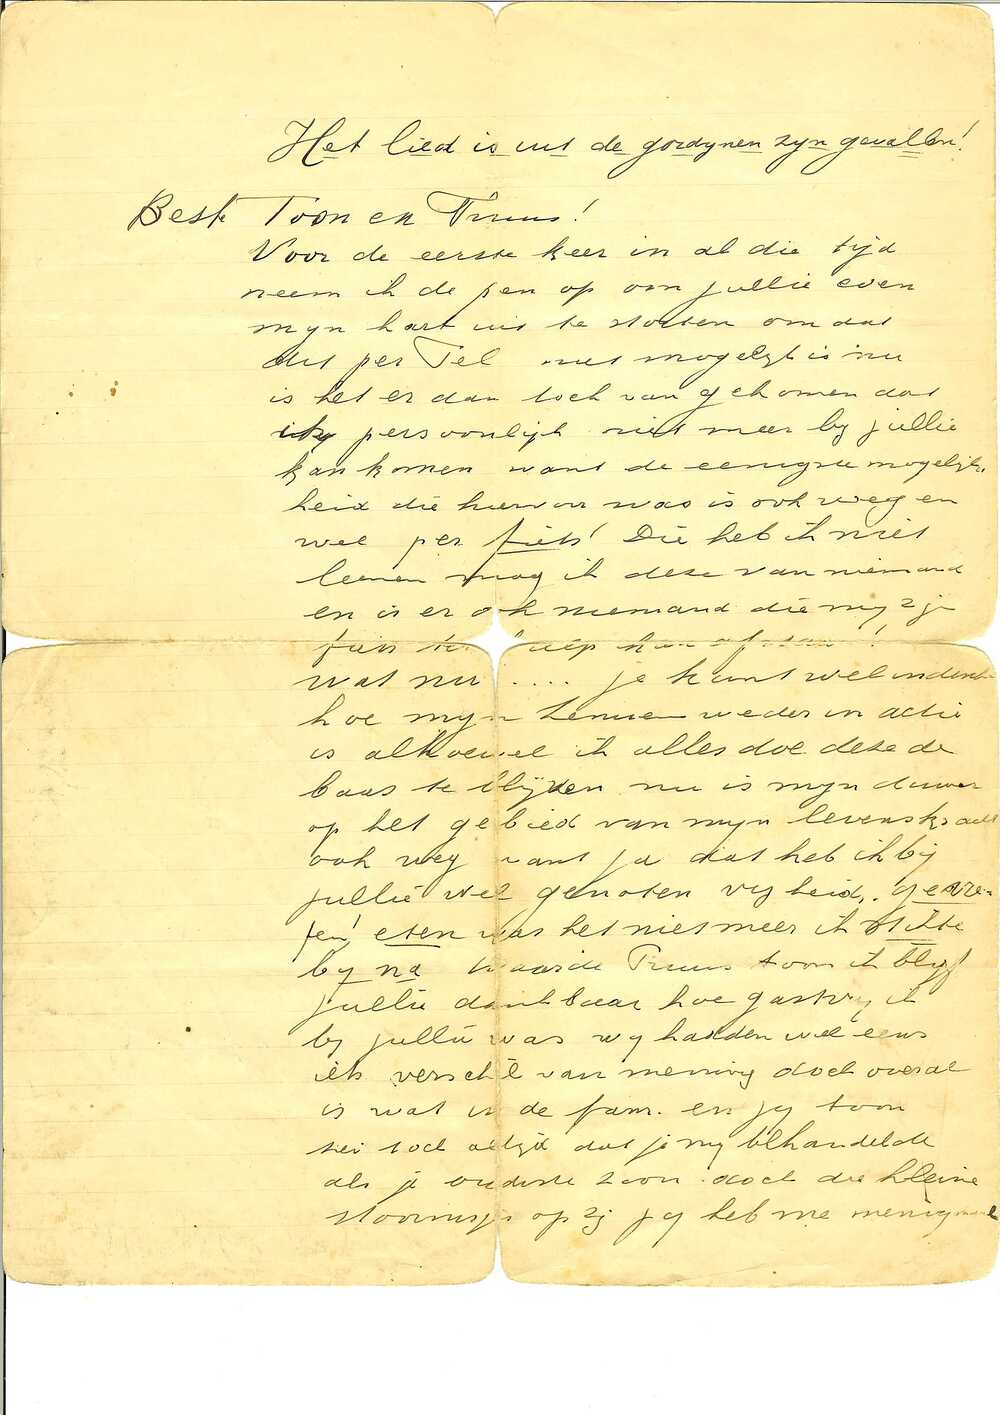 Het lied is uit de gordynen zyn gevallen!
Beste Toon en Truus!
Voor de eerste keer in al die tijd
neem ik de pen op om jullie even
myn hart uit te storten om dat
dit per Tel niet mogelijk is nu
is het er dan toch van gekomen dat
ik persoonlijk niet meer by jullie
kan komen want de eenigste mogelijk-
heid die hiervoor was is ook weg en
wel per fiets! Die heb ik niet
leenen mag ik deze van niemand
en is er ook niemand die my z'je
fiets
wat nu .... je kunt wel indenk
hoe myn zenuwen weder in actie
is alhoewel ik alles doe deze de
baas te blijven nu is myn
op het gebied van myn levenskracht
ook weg want ja dat heb ik bij
jullie wel genoten vryheid,
eten was het niet meer ik stikte
by na waarde Truus toon ik blyf
jullie dankbaar hoe gastvry ik
by jullie was wy hadden wel eens
iets verschil van mening doch overal
is wat in de fam. en jy toon
zei toch altyd dat je my behandelde
als je oudste zoon doch die kleine
stoornisjes op zij jy heb me menigmaal